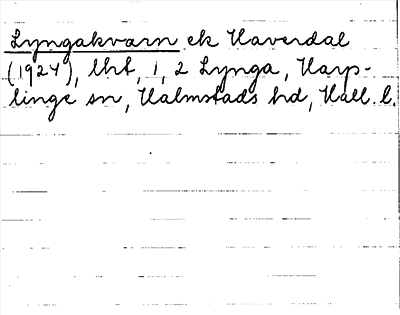 Lyngakvarn ek Haverdal
(1927), lht, 1, 2 Lynga, Harp-
linge sn, Halmstads hd, Hall. l.